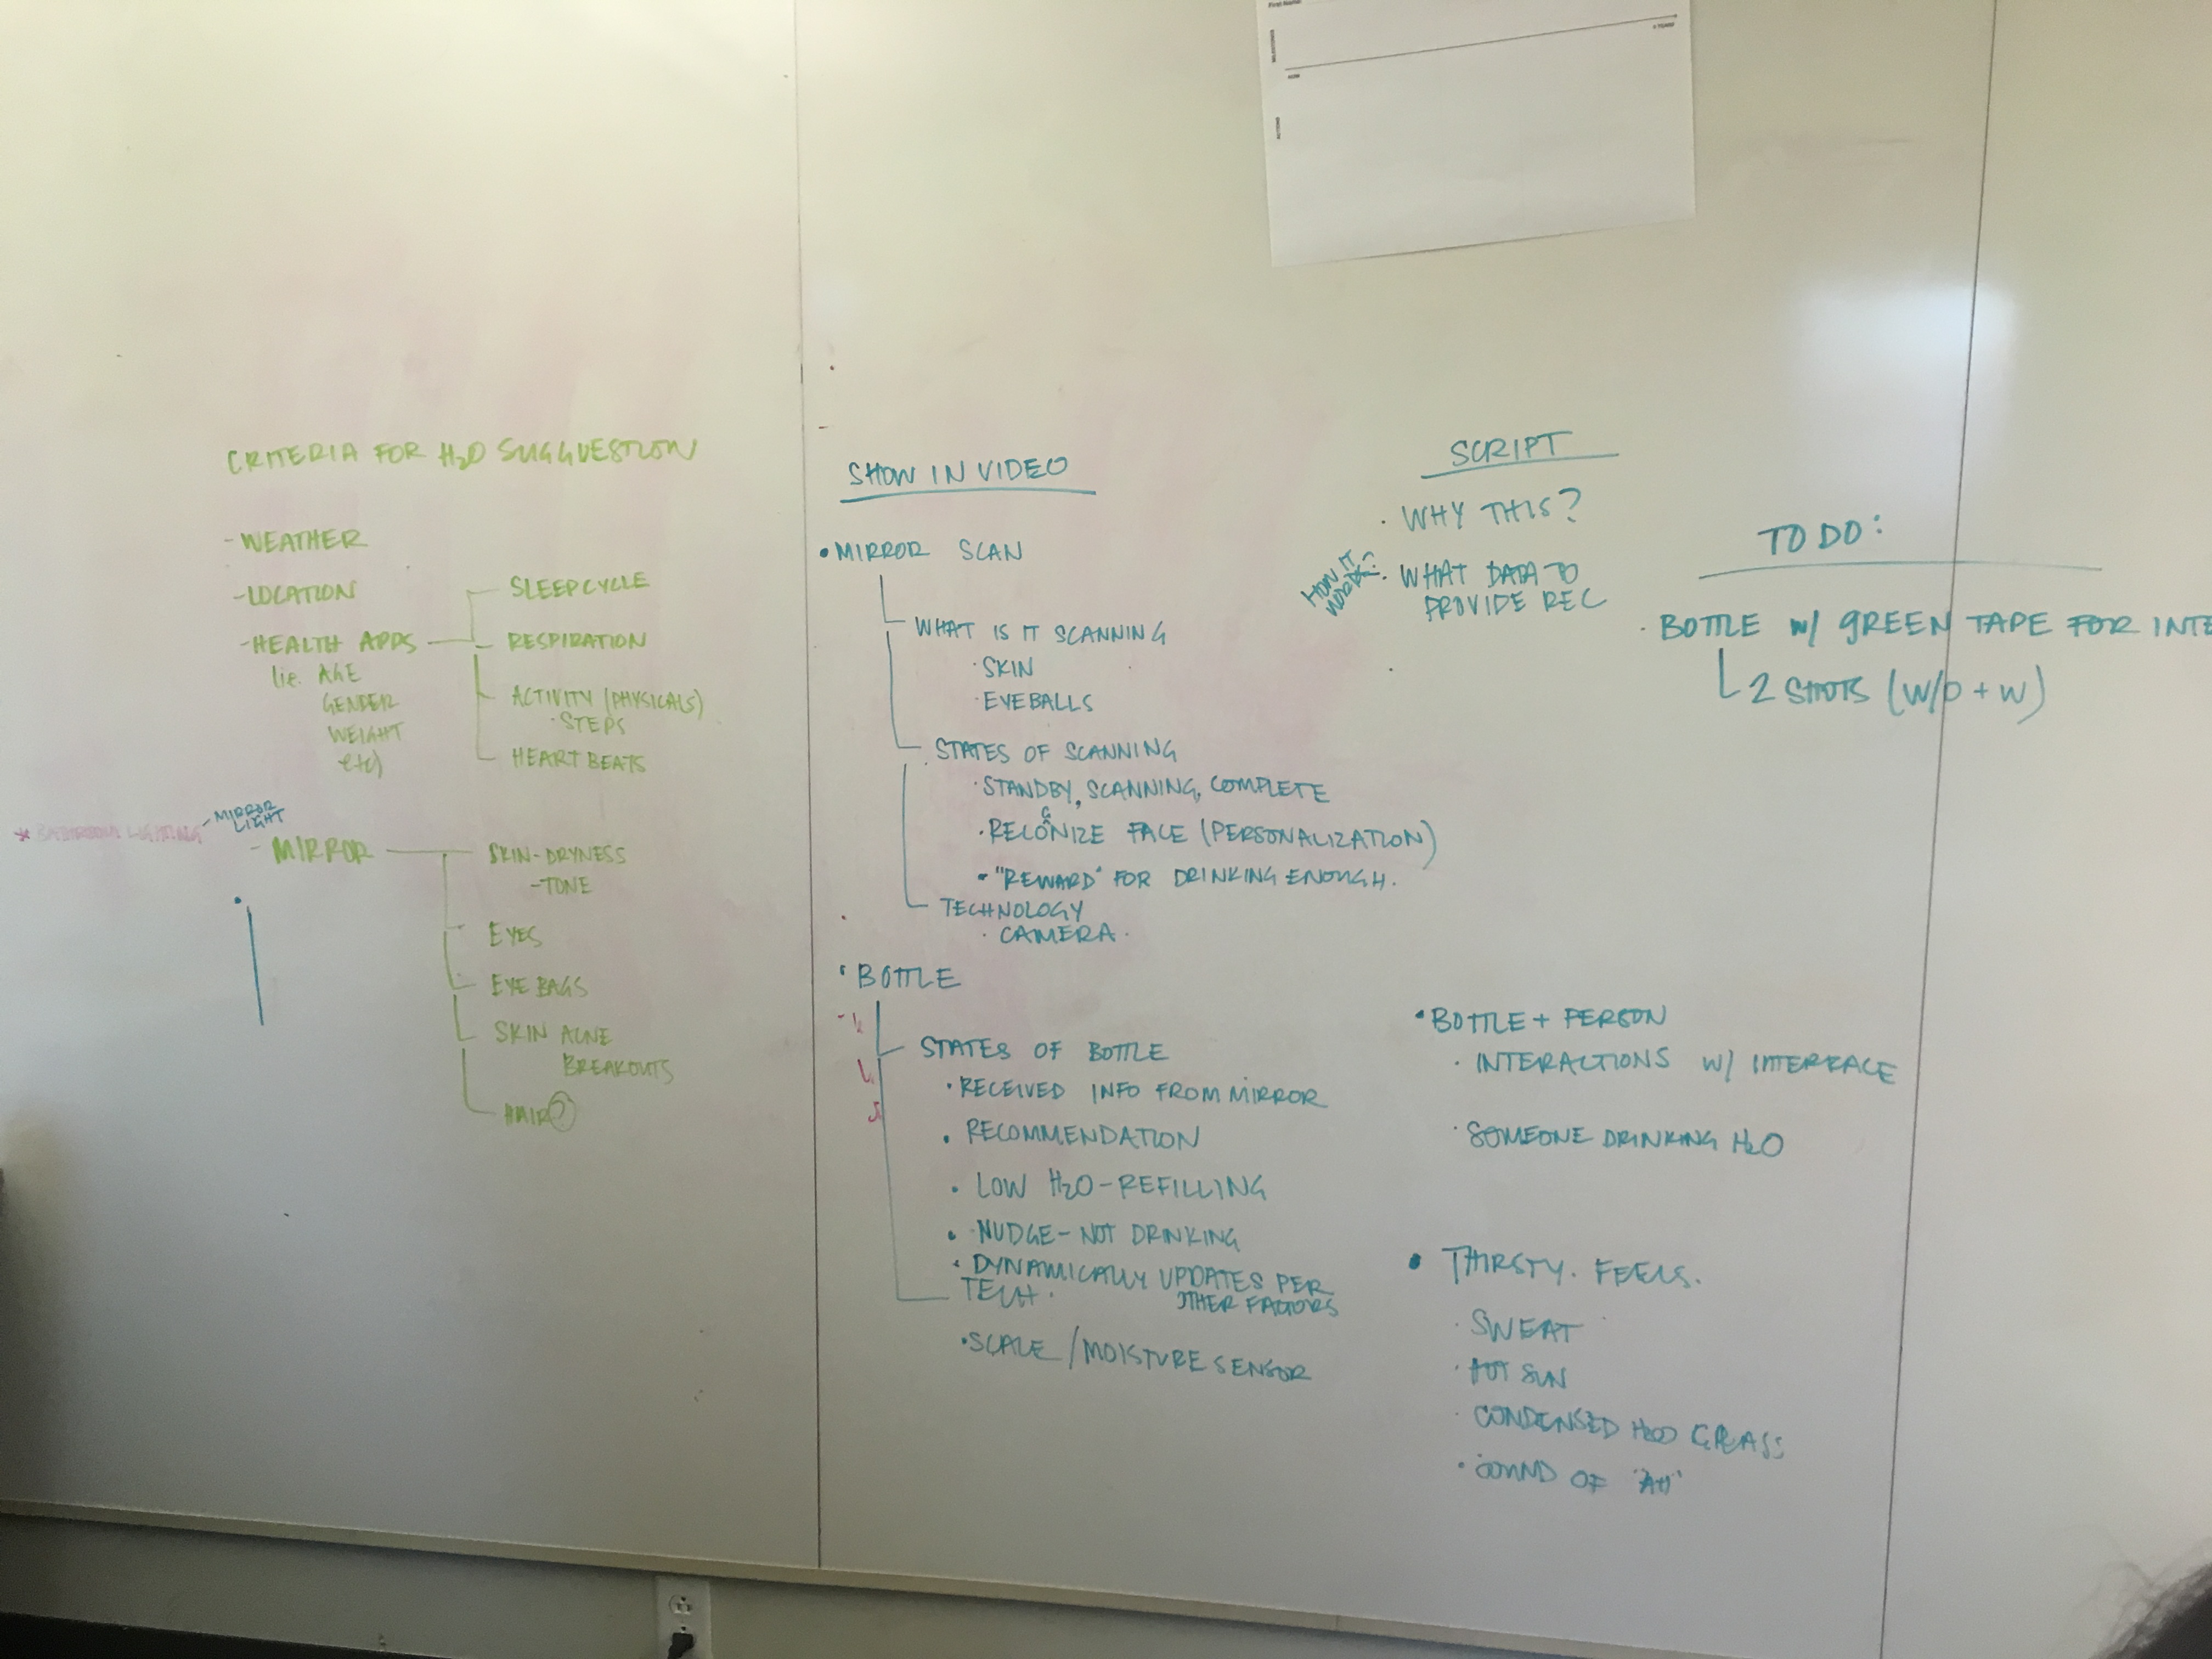 First Name
MILESTONES
NOW
ACTIONS
CRITERIA FOR H2O SUGGUESTION
- WEATHER
- LOCATION
- HEALTH APPS
(ie. AGE
GENDER
WEIGHT
etc)
SLEEP CYCLE
RESPIRATION
ACTIVITY (PHYSICALS)
· STEPS
HEART BEATS
* BATHROOM LIGHTING
- MIRROR LIGHT
- MIRROR
SKIN - DRYNESS
- TONE
EYES
EYE BAGS
SKIN ACNE
BREAKOUTS
HAIR?
SHOW IN VIDEO
• MIRROR SCAN
WHAT IS IT SCANNING
· SKIN
· EYEBALLS
STATES OF SCANNING
· STANDBY, SCANNING, COMPLETE
· RECOGNIZE FACE (PERSONALIZATION)
• "REWARD" FOR DRINKING ENOUGH.
TECHNOLOGY
· CAMERA.
• BOTTLE
STATES OF BOTTLE
· RECEIVED INFO FROM MIRROR
• RECOMMENDATION
• LOW H2O - REFILLING
• NUDGE - NOT DRINKING
• DYNAMICALLY UPDATES PER
OTHER FACTORS
TECH.
• SCALE / MOISTURE SENSOR
SCRIPT
· WHY THIS?
HOW IT WORKS:
· WHAT DATA TO
PROVIDE REC
TO DO:
· BOTTLE W/ GREEN TAPE FOR INTE
2 SHOTS (W/O + W)
• BOTTLE + PERSON
· INTERACTIONS W/ INTERFACE
· SOMEONE DRINKING H2O
• THIRSTY. FEELS.
· SWEAT
· HOT SUN
· CONDENSED H2O GLASS
• SOUND OF "AH"